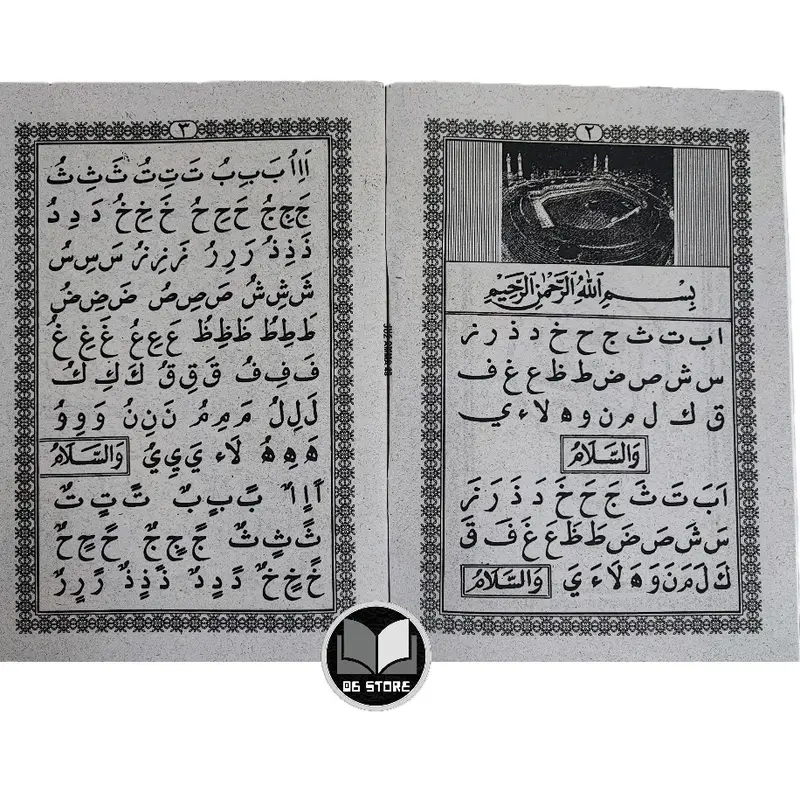 ٢
بِسْمِ اللهِ الرَّحْمٰنِ الرَّحِيْمِ
ا ب ت ث ج ح خ د ذ ر ز
س ش ص ض ط ظ ع غ ف
ق ك ل م ن و ه لا ء ي
وَالسَّلَامُ
اَ بَ تَ ثَ جَ حَ خَ دَ ذَ رَ زَ
سَ شَ صَ ضَ طَ ظَ عَ غَ فَ قَ
كَ لَ مَ نَ وَ هَ لَا ءَ يَ وَالسَّلَامُ
٣
اَ اِ اُ بَ بِ بُ تَ تِ تُ ثَ ثِ ثُ
جَ جِ جُ حَ حِ حُ خَ خِ خُ دَ دِ دُ
ذَ ذِ ذُ رَ رِ رُ زَ زِ زُ سَ سِ سُ
شَ شِ شُ صَ صِ صُ ضَ ضِ ضُ
طَ طِ طُ ظَ ظِ ظُ عَ عِ عُ غَ غِ غُ
فَ فِ فُ قَ قِ قُ كَ كِ كُ
لَ لِ لُ مَ مِ مُ نَ نِ نُ وَ وِ وُ
هَ هِ هُ لَا ء يَ يِ يُ وَالسَّلَامُ
اً اٍ اٌ بً بٍ بٌ تً تٍ تٌ
ثً ثٍ ثٌ جً جٍ جٌ حً حٍ حٌ
خً خٍ خٌ دً دٍ دٌ ذً ذٍ ذٌ رً رٍ رٌ
06 STORE